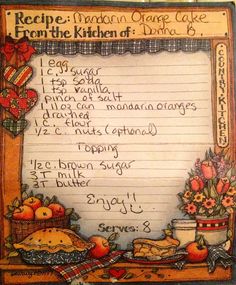 Recipe: Mandarin Orange Cake
From the Kitchen of: Donna B.
1 egg
1 c. sugar
1 tsp soda
1 tsp vanilla
pinch of salt
1 11oz can mandarin oranges
drained
1 c. flour
1/2 c. nuts (optional)
Topping
1/2 c. brown sugar
3 T milk
3 T butter
Enjoy!!
Serves: 8
COUNTRY KITCHEN